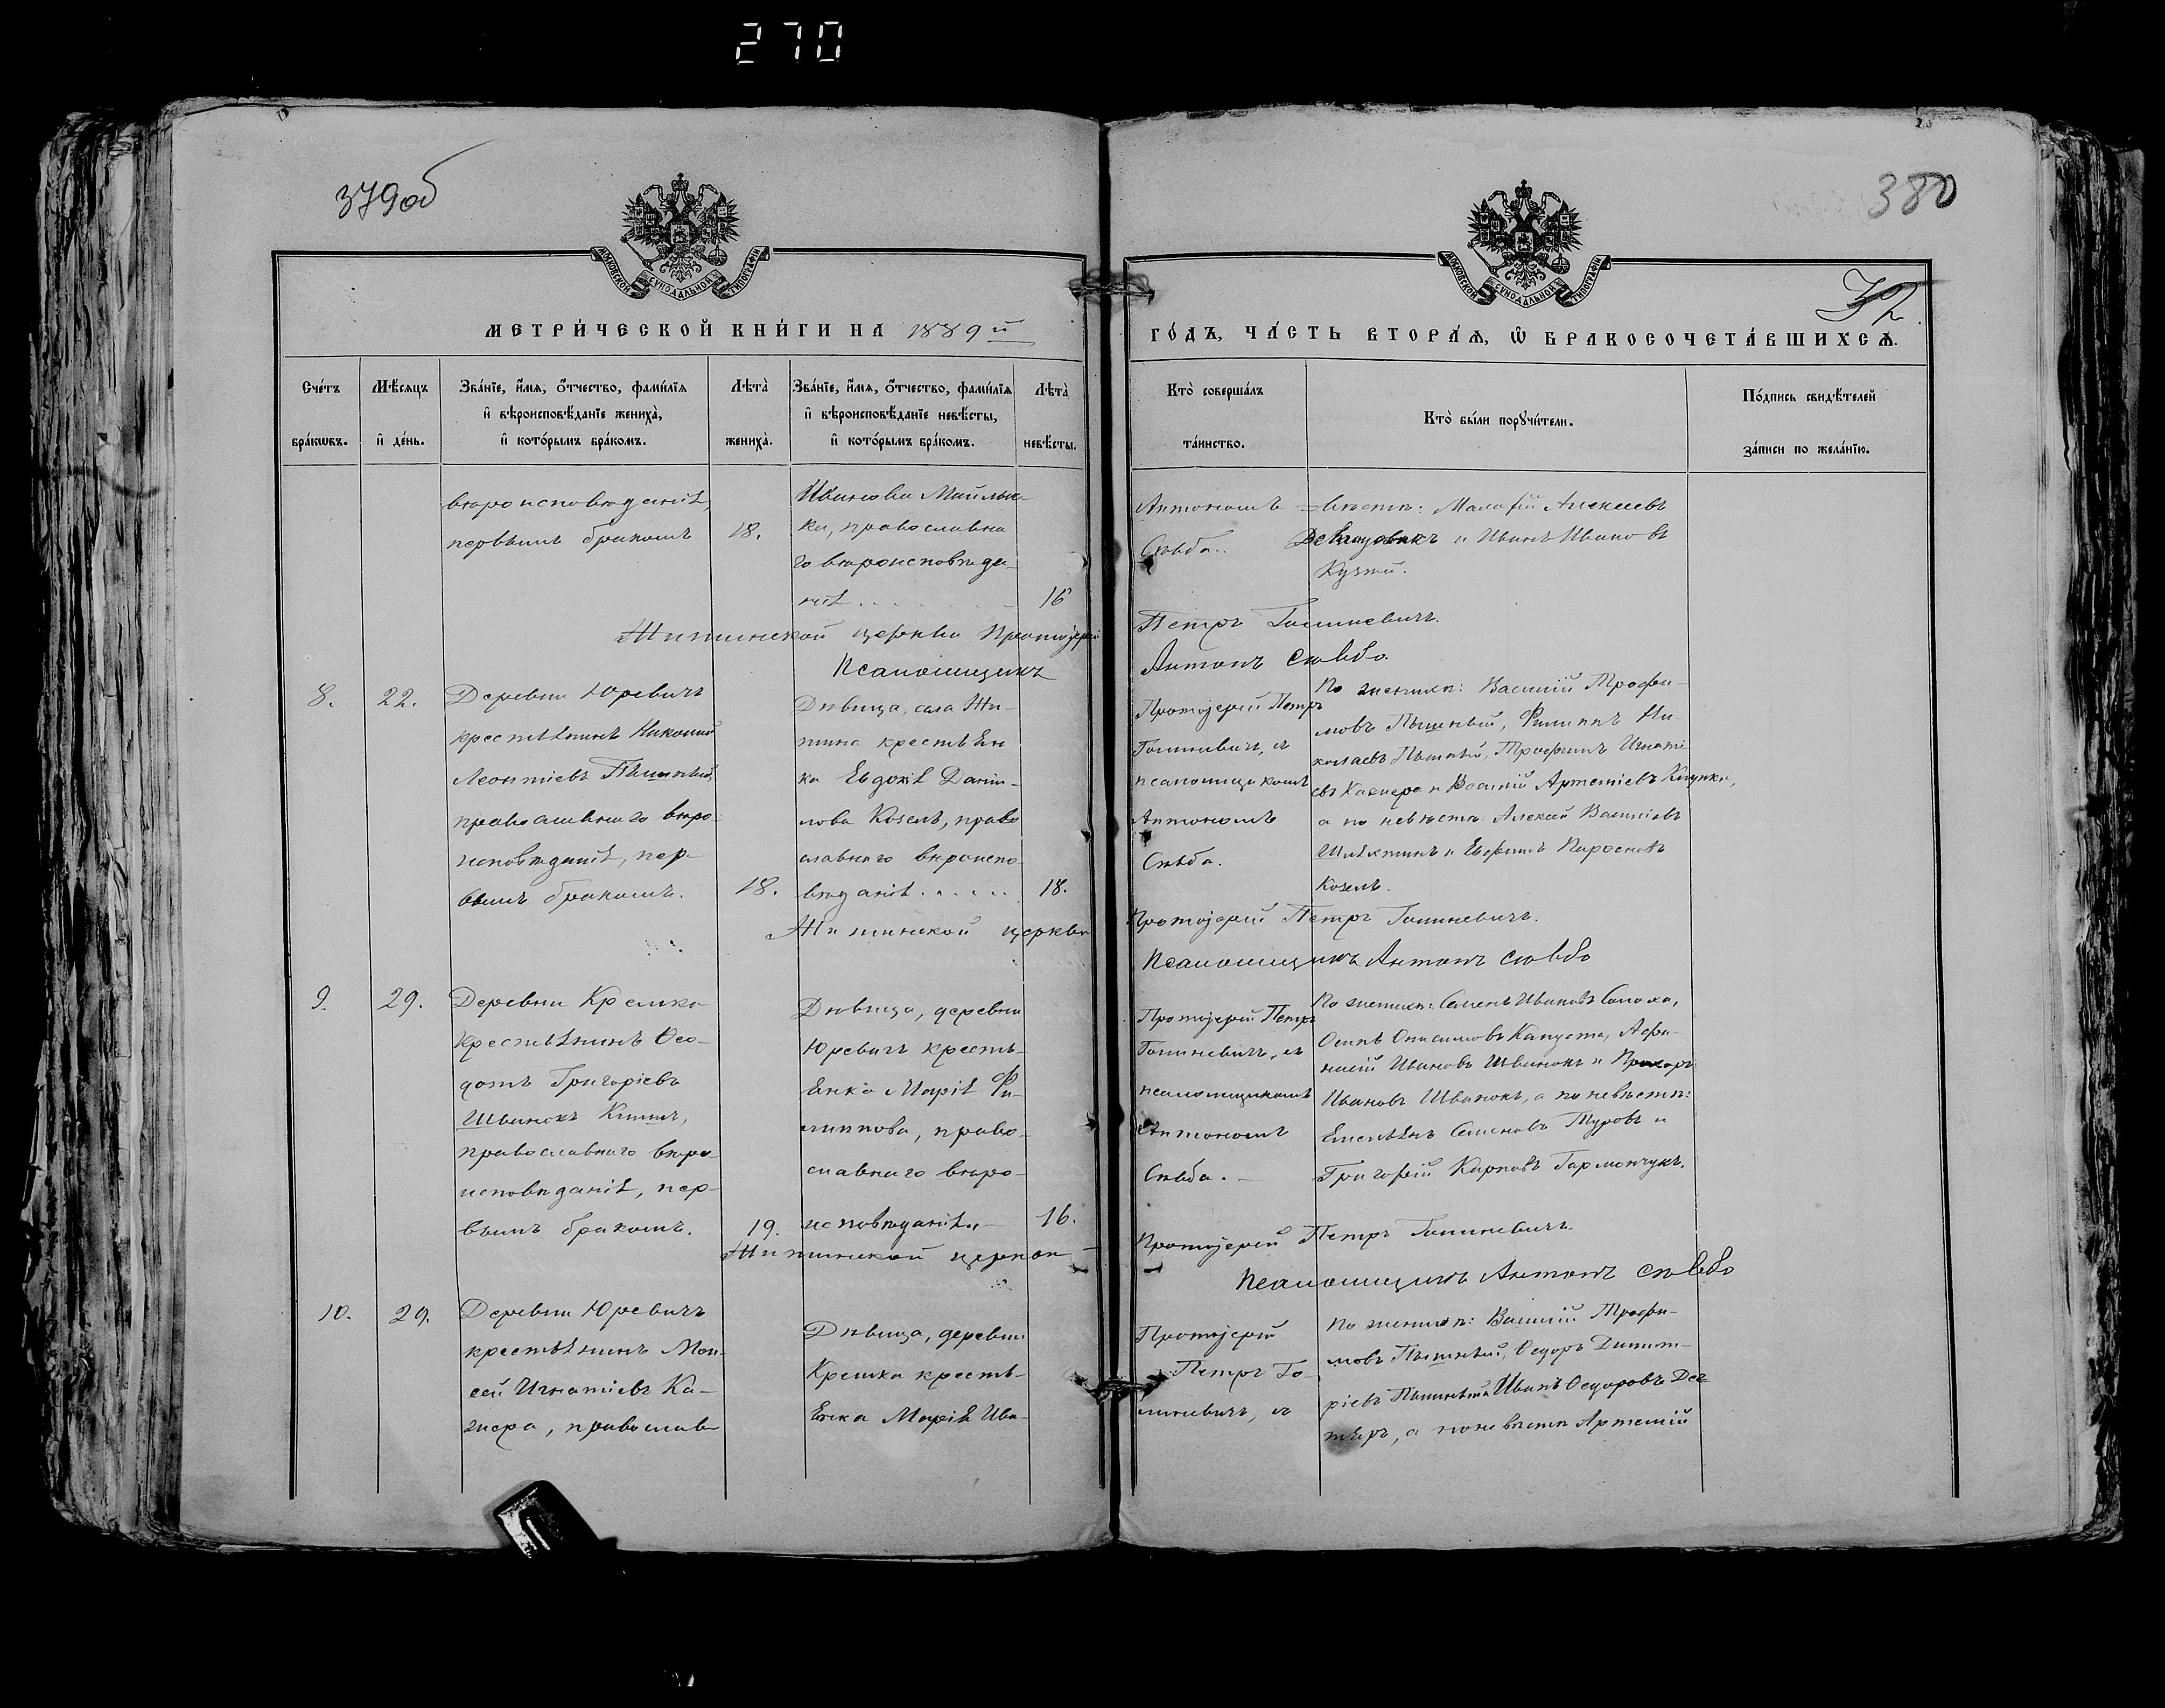 270
379об
380
32
МОСКОВСКОЙ СѴНОДАЛЬНОЙ ТИПОГРАФІИ
МОСКОВСКОЙ СѴНОДАЛЬНОЙ ТИПОГРАФІИ
МЕТРИ́ЧЕСКОЙ КНИ́ГИ НА 1889й
ГО́ДЪ, ЧА́СТЬ ВТОРА́Ѧ, Ѡ҆ БРАКОСОЧЕТА́ВШИХСѦ.
Сче́тъ
бра́кωвъ.
Мѣ́сѧцъ
и҆ де́нь.
Зва́нїе, и҆́мѧ, ѻ҆́тчество, фами́лїѧ
и҆ вѣроисповѣ́данїе жениха̀,
и҆ кото́рымъ бра́комъ.
Лѣта̀
жениха̀.
Зва́нїе, и҆́мѧ, ѻ҆́тчество, фами́лїѧ
и҆ вѣроисповѣ́данїе невѣ́сты,
и҆ кото́рымъ бра́комъ.
Лѣта̀
невѣ́сты.
Кто̀ соверша́лъ
та́инство.
Кто̀ бы́ли порꙋчи́тели.
По́дпись свидѣ́телей
за́писи по жела́нїю.
вѣроисповѣданія,
первымъ бракомъ
18.
Иванова
ка, православна
го вѣроисповѣда-
нія
16
Антономъ
Сѣвба.
невѣстѣ: Малафій Алексеевъ
и Иванъ Ивановъ
Кузмич.
церкви Протоіерей
Петръ Голиневичъ.
Псаломщикъ
Антонъ Сѣвбо.
8.
22.
Деревни Юревичъ
крестьянинъ Николай
Леонтіевъ
православнаго вѣро-
исповѣданія, пер-
вымъ бракомъ.
18.
Дѣвица, села Жи-
тина крестьян
ка Евдокія Дани-
лова Козелъ, право
славнаго вѣроиспо-
вѣданія
18.
Протоіерей Петръ
Голиневичъ, съ
псаломщикомъ
Антономъ
Сѣвба.
По женихѣ: Василій Трофи-
мовъ Филиппъ Ни-
колаевъ Трофимъ Игнаті
евъ и Василій Артеміевъ
а по невѣстѣ: Алексѣй Василіевъ
и Ефимъ
Козелъ.
церкви
Протоіерей Петръ Голиневичъ.
Псаломщикъ Антонъ Сѣвбо
9.
29.
Деревни Кремка
крестьянинъ Ѳео-
дотъ Григоріевъ
Шванокъ
православнаго вѣро-
исповѣданія, пер-
вымъ бракомъ.
19.
Дѣвица, деревни
Юревичъ кресть-
янка Марія Фи-
липпова, право-
славнаго вѣро-
исповѣданія
16.
Протоіерей Петръ
Голиневичъ, съ
псаломщикомъ
Антономъ
Сѣвба.
По женихѣ: Семенъ Ивановъ
Осипъ Онисимовъ Капуста, Афа-
насій Ивановъ Шванокъ и Прохоръ
Ивановъ Шванокъ, а по невѣстѣ:
Емельянъ Семеновъ Туровъ и
Григорій Карповъ Гармончукъ.
Протоіерей Петръ Голиневичъ.
Псаломщикъ Антонъ Сѣвбо
10.
29.
Деревни Юревичъ
крестьянинъ Мои-
сей Игнатіевъ Ка-
православ
Дѣвица, деревни
Кремка кресть-
янка Марія Ива-
Протоіерей
Петръ Го-
линевичъ, съ
По женихѣ: Василій Трофи-
мовъ Ѳедоръ Димит-
ріевъ Иванъ Ѳедоровъ Дег
тярь, а по невѣстѣ Артемій